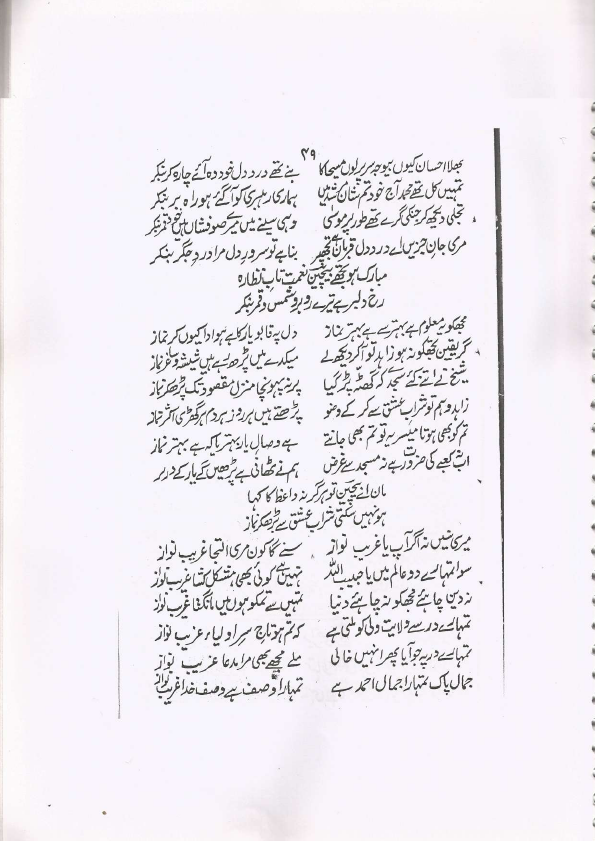 ۴۹
بھلا احسان کیوں بیوجہ سر پر لوں مسیحا کا بنے تھے درد دل خود وہ آئے چارہ گر بنکر
تمہیں کل تھے محمد آج خود تم شان شاہیں ہماری رہبری کو آگئے ہو راہبر بنکر
تجلی دیکھ کر جنکی گرے تھے طور پر موسیٰ وہی سینے میں میرے ضوفشاں ہیں خود قمر بنکر
مری جان حزیں اے درد دل قربان ہے تجھ پر بنا ہے تو سرور دل مرا درد جگر بنکر
مبارک ہو تجھے بیچین نعمت تاب نظارہ
رخ دلبر ہے تیرے روبرو شمس و قمر بنکر
مجھکو یہ معلوم ہے بہتر سے ہے بہتر نماز دل پہ قابو یار کا ہے ہو ادا کیوں کر نماز
گر یقین تجھکو نہ ہو زاہد تو آکر دیکھ لے میکدے میں پڑھ رہے ہیں شیشہ و ساغر نماز
شیخ نے اتنے کئے سجدے کہ گھٹہ پڑ گیا پر نہ پہونچا منزل مقصود تک پڑھکر نماز
زاہدو ہم تو شراب عشق سے کر کے وضو پڑھتے ہیں ہر روز ہر دم ہر گھڑی اکثر نماز
تم کو بھی ہوتا میسر یہ تو تم بھی جانتے ہے وصال یار بہتر یا کہ ہے بہتر نماز
اب کعبے کی ضرورت ہے نہ مسجد سے غرض ہم نے ٹھانی ہے پڑھیں گے یار کے در پر
مان اے بیچین تو ہرگز نہ واعظ کا کہا
ہو نہیں سکتی شراب عشق سے بڑھکر نماز
میری سنیں نہ اگر آپ یا غریب نواز سنے گا کون مری التجا غریب نواز
سوا تمہارے دو عالم میں یا حبیب اللہ نہیں ہے کوئی بھی مشکل کشا غریب نواز
نہ دین چاہئے مجھکو نہ چاہئے دنیا تمہیں سے تمکو ہوں میں مانگتا غریب نواز
تمہارے در سے ولایت ولی کو ملتی ہے کہ تم ہو تاج سر اولیاء غریب نواز
تمہارے در پہ جو آیا پھرا نہیں خالی ملے مجھے بھی مرا مدعا غریب نواز
جمال پاک تمہارا جمال احمد ہے تمہارا وصف ہے وصف خدا غریب نواز